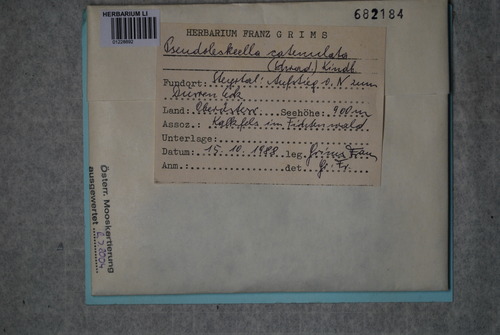 HERBARIUM LI
01228692
682184
HERBARIUM FRANZ GRIMS
Pseudoleskeella catenulata
(Schrad) Kindb.
Fundort: Steyrtal: Aufstieg v. N zum
Dürren Eck
Land: Oberösterr. Seehöhe: 900 m
Assoz.: Kalkfels im Fichtenwald
Unterlage:
Datum: 15. 10. 1988 leg. Grims Franz
Anm.: det Gr. Fr.
Österr. Mooskartierung
ausgewertet 2004